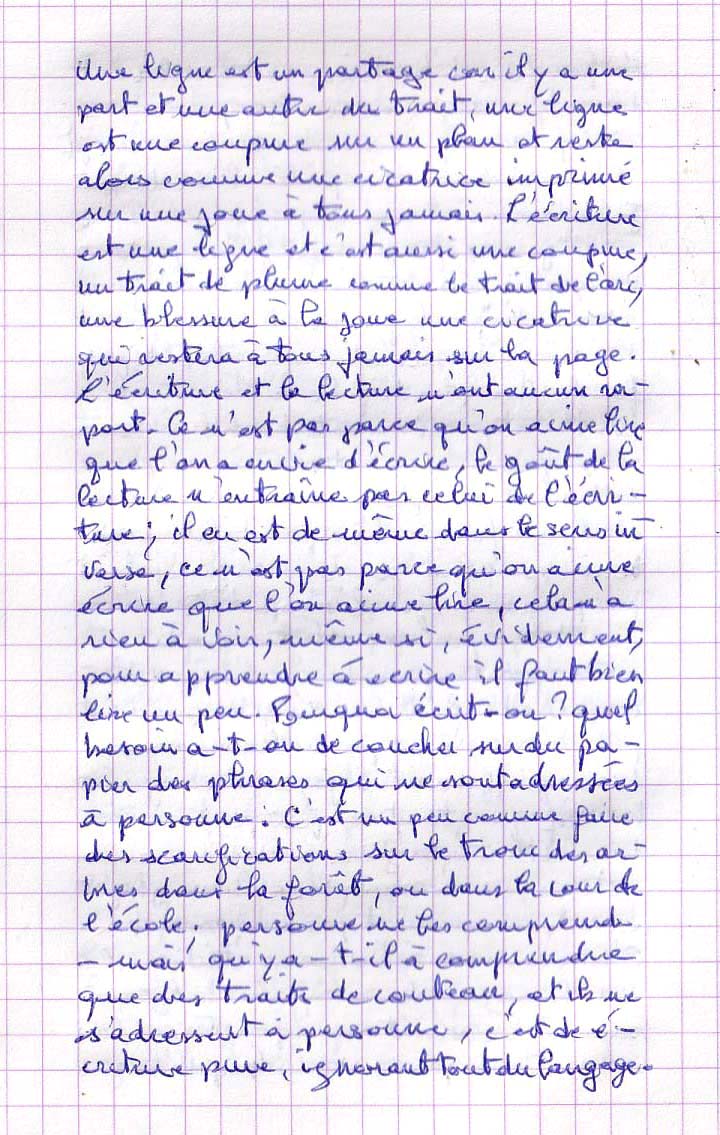 Une ligne est un partage car il y a une
part et une autre du trait, une ligne
est une coupure sur un plan et reste
alors comme une cicatrice imprimé
sur une joue à tous jamais. L'écriture
est une ligne et c'est aussi une coupure,
un trait de plume comme le trait de l'arc,
une blessure à la joue une cicatrice
qui restera à tous jamais sur la page.
L'écriture et la lecture n'ont aucun rap-
port. Ce n'est pas parce qu'on aime lire
que l'on a envie d'écrire, le goût de la
lecture n'entraîne pas celui de l'écri-
ture; il en est de même dans le sens in-
verse, ce n'est pas parce qu'on aime
écrire que l'on aime lire, cela n'a
rien à voir, même si, évidement,
pour apprendre à écrire il faut bien
lire un peu. Pourquoi écrit-on? quel
besoin a-t-on de coucher sur du pa-
pier des phrases qui ne sont adressées
à personne: C'est un peu comme faire
des scarifications sur le tronc des ar-
bres dans la forêt, ou dans la cour de
l'école; personne ne les comprend
- mais qu'y a-t-il à comprendre
que des traits de couteau, et ils ne
s'adressent à personne, c'est de é-
criture pure, ignorant tout du langage.